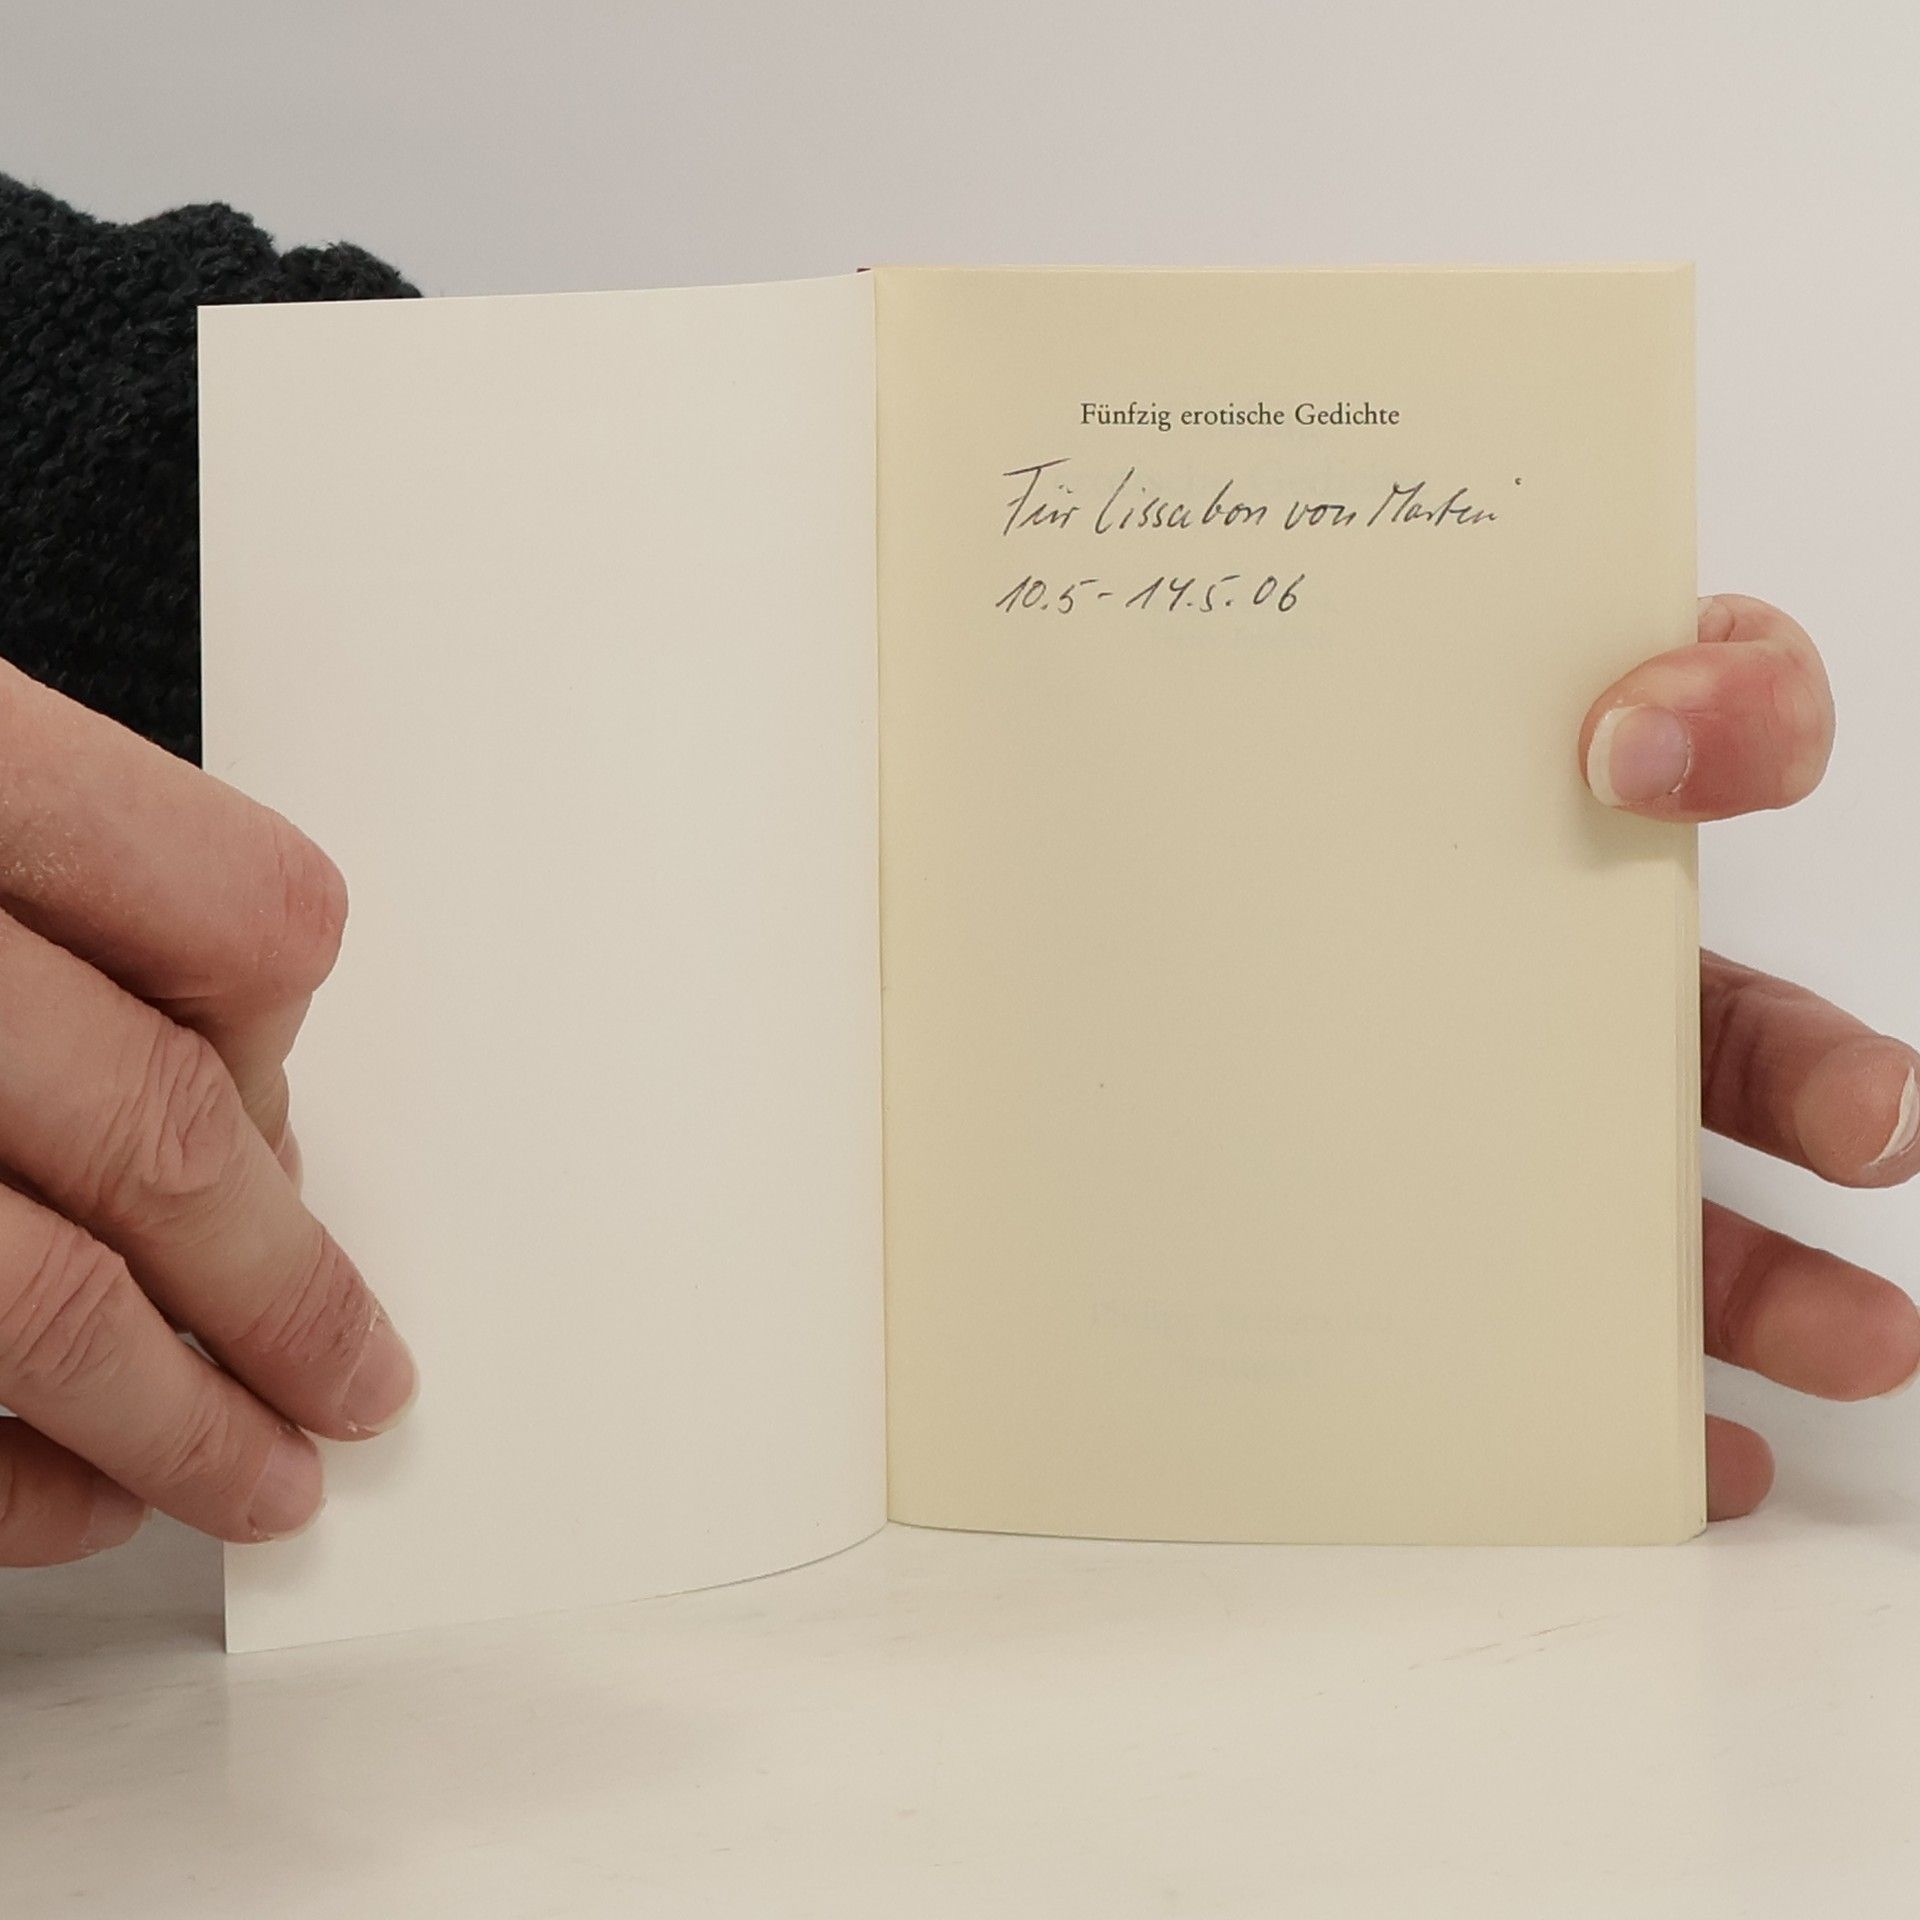 Fünfzig erotische Gedichte
Für Lissabon von Martin
10.5 - 14.5.06